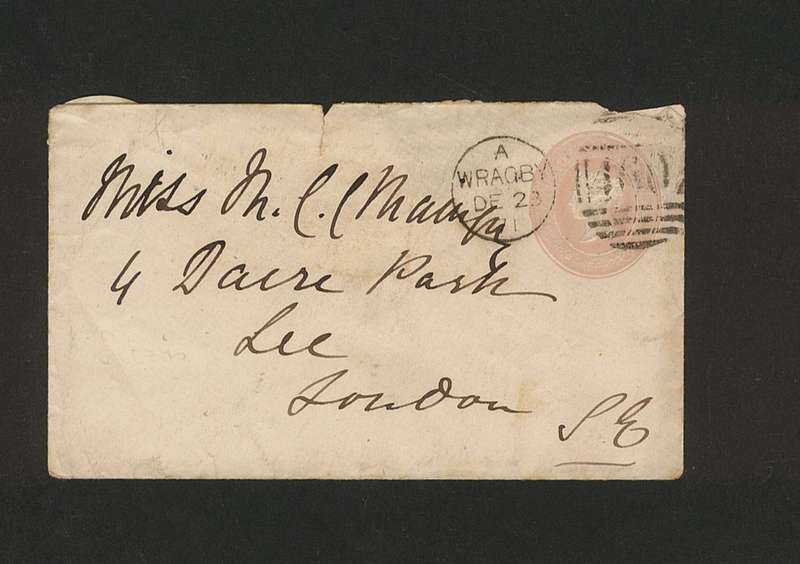 A
WRAGBY
DE 23
71
Miss M. C.
4 Dacre Park
Lee
London
S.E